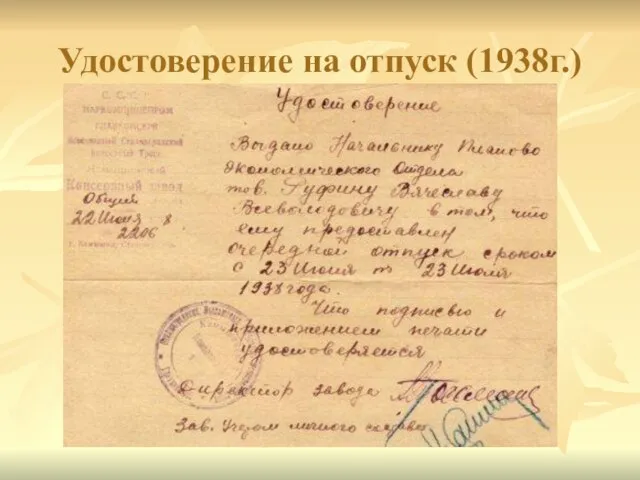 Удостоверение на отпуск (1938г.)
С. С. С. Р.
НАРКОМПИЩЕПРОМ
Консервный завод
Общий
22 Июня 8
2206
Удостоверение
Выдано Начальнику Планово
Экономического Отдела
тов. Гуфину Вячеславу
Всеволодовичу в том, что
ему предоставлен
очередной отпуск сроком
с 23 Июня по 23 Июля
1938 года.
Что подписью и
приложением печати
удостоверяется
Директор завода
Зав. Учетом личного состава